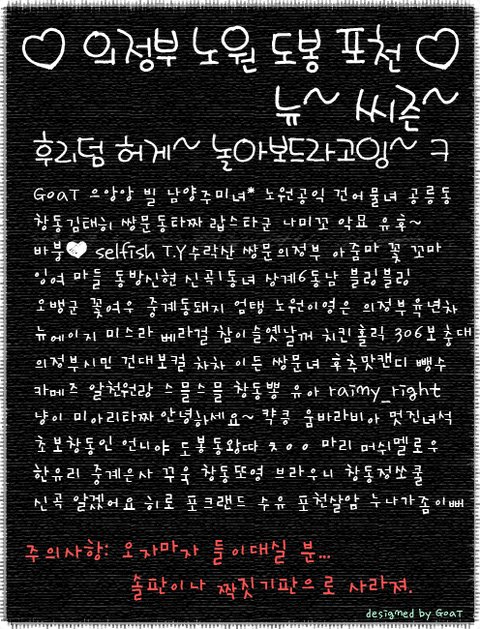 ♡ 의정부 노원 도봉 포천 ♡
뉴~ 씨즌~
후리덤 허게~ 놀아보드라고잉~ ㅋ
GoaT 으앙앙 빌 남양주미녀* 노원공익 건어물녀 공릉동
창동김태희 쌍문동타짜 랍스타군 나미꼬 악묘 유후~
바붕♥ selfish T.Y 수락산 쌍문의정부 아줌마 꽃 꼬마
잉여 마들 동방신현 신곡1동녀 상계6동남 블링블링
오뱅군 꽃여우 중계동돼지 엄탱 노원이영은 의정부육년차
뉴에이지 미스라 베라걸 참이슬옛날꺼 치킨홀릭 306보충대
의정부시민 건대보컬 차차 이든 쌍문녀 후추맛캔디 뺑수
카메즈 알천원랑 스믈스믈 창동뽕 유아 rainy_right
냥이 미아리타짜 안녕하세요~ 캭콩 움바라비아 멋진녀석
초보창동인 언니야 도봉동왕따 ㅊㅇㅇ 마리 머쉬멜로우
한유리 중계은사 꾸욱 창동또영 브라우니 창동정쏘쿨
신곡 알겠어요 히로 포크랜드 수유 포천살암 누나가좀이뻐
주의사항: 오자마자 들이대실 분...
솔판이나 짝짓기판으로 사라져.
designed by GoaT